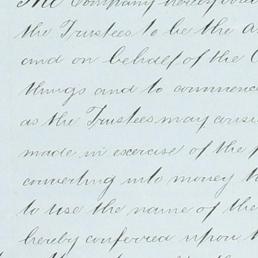 The Company hereby
the Trustees to be the
and on behalf of the
things and to commence
as the Trustees may
made in exercise of the
converting into money
to use the name of the
hereby conferred upon